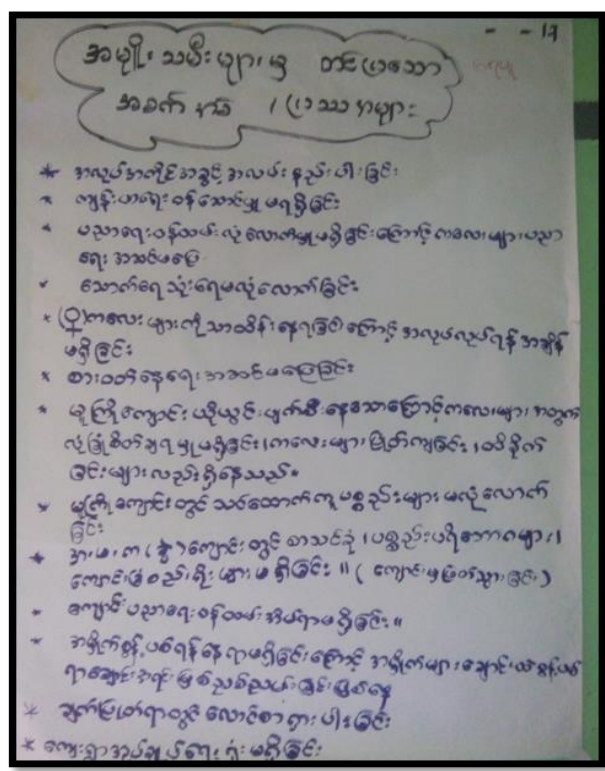 - - 17
အမျိုးသမီးများမှ တင်ပြသော
အခက်အခဲ / ပြဿနာများ
* အလုပ်အကိုင်အခွင့်အလမ်းနည်းပါးခြင်း
* ကျန်းမာရေးဝန်ဆောင်မှုမရရှိခြင်း
* ပညာရေးဝန်ထမ်းလုံလောက်မှုမရှိခြင်းကြောင့် ကလေးများပညာ
ရေးအဆင်မပြေ
သောက်ရေသုံးရေမလုံလောက်ခြင်း
* (♀) ကလေးများကိုသာထိန်းနေရခြင်းကြောင့် အလုပ်လုပ်ရန်အချိန်
မရှိခြင်း
* စားဝတ်နေရေးအဆင်မပြေခြင်း
* မူကြိုကျောင်းယိုယွင်းပျက်စီးနေသောကြောင့်ကလေးများအတွက်
လုံခြုံစိတ်ချရမှုမရှိခြင်း၊ ကလေးများပြုတ်ကျခြင်း၊ ထိခိုက်
ခြင်းများလည်းရှိနေသည်။
* မူကြိုကျောင်းတွင် သင်ထောက်ကူပစ္စည်းများမလုံလောက်
ခြင်း
* အ.မ.က (ခွဲ) ကျောင်းတွင် စာသင်ခုံ၊ ပစ္စည်းပရိဘောဂများ၊
ကျောင်းခြံစည်းရိုးများမရှိခြင်း။ (ကျောင်းမှ
ကျောင်းပညာရေးဝန်ထမ်းအိမ်ရာမရှိခြင်း။
* အမှိုက်စွန့်ပစ်ရန်နေရာမရှိခြင်းကြောင့် အမှိုက်များချောင်းထဲစွန့်ပစ်
* ချက်ပြုတ်ရာတွင် လောင်စာရှားပါးခြင်း
* ကျေးရွာအုပ်ချုပ်ရေးရုံးမရှိခြင်း